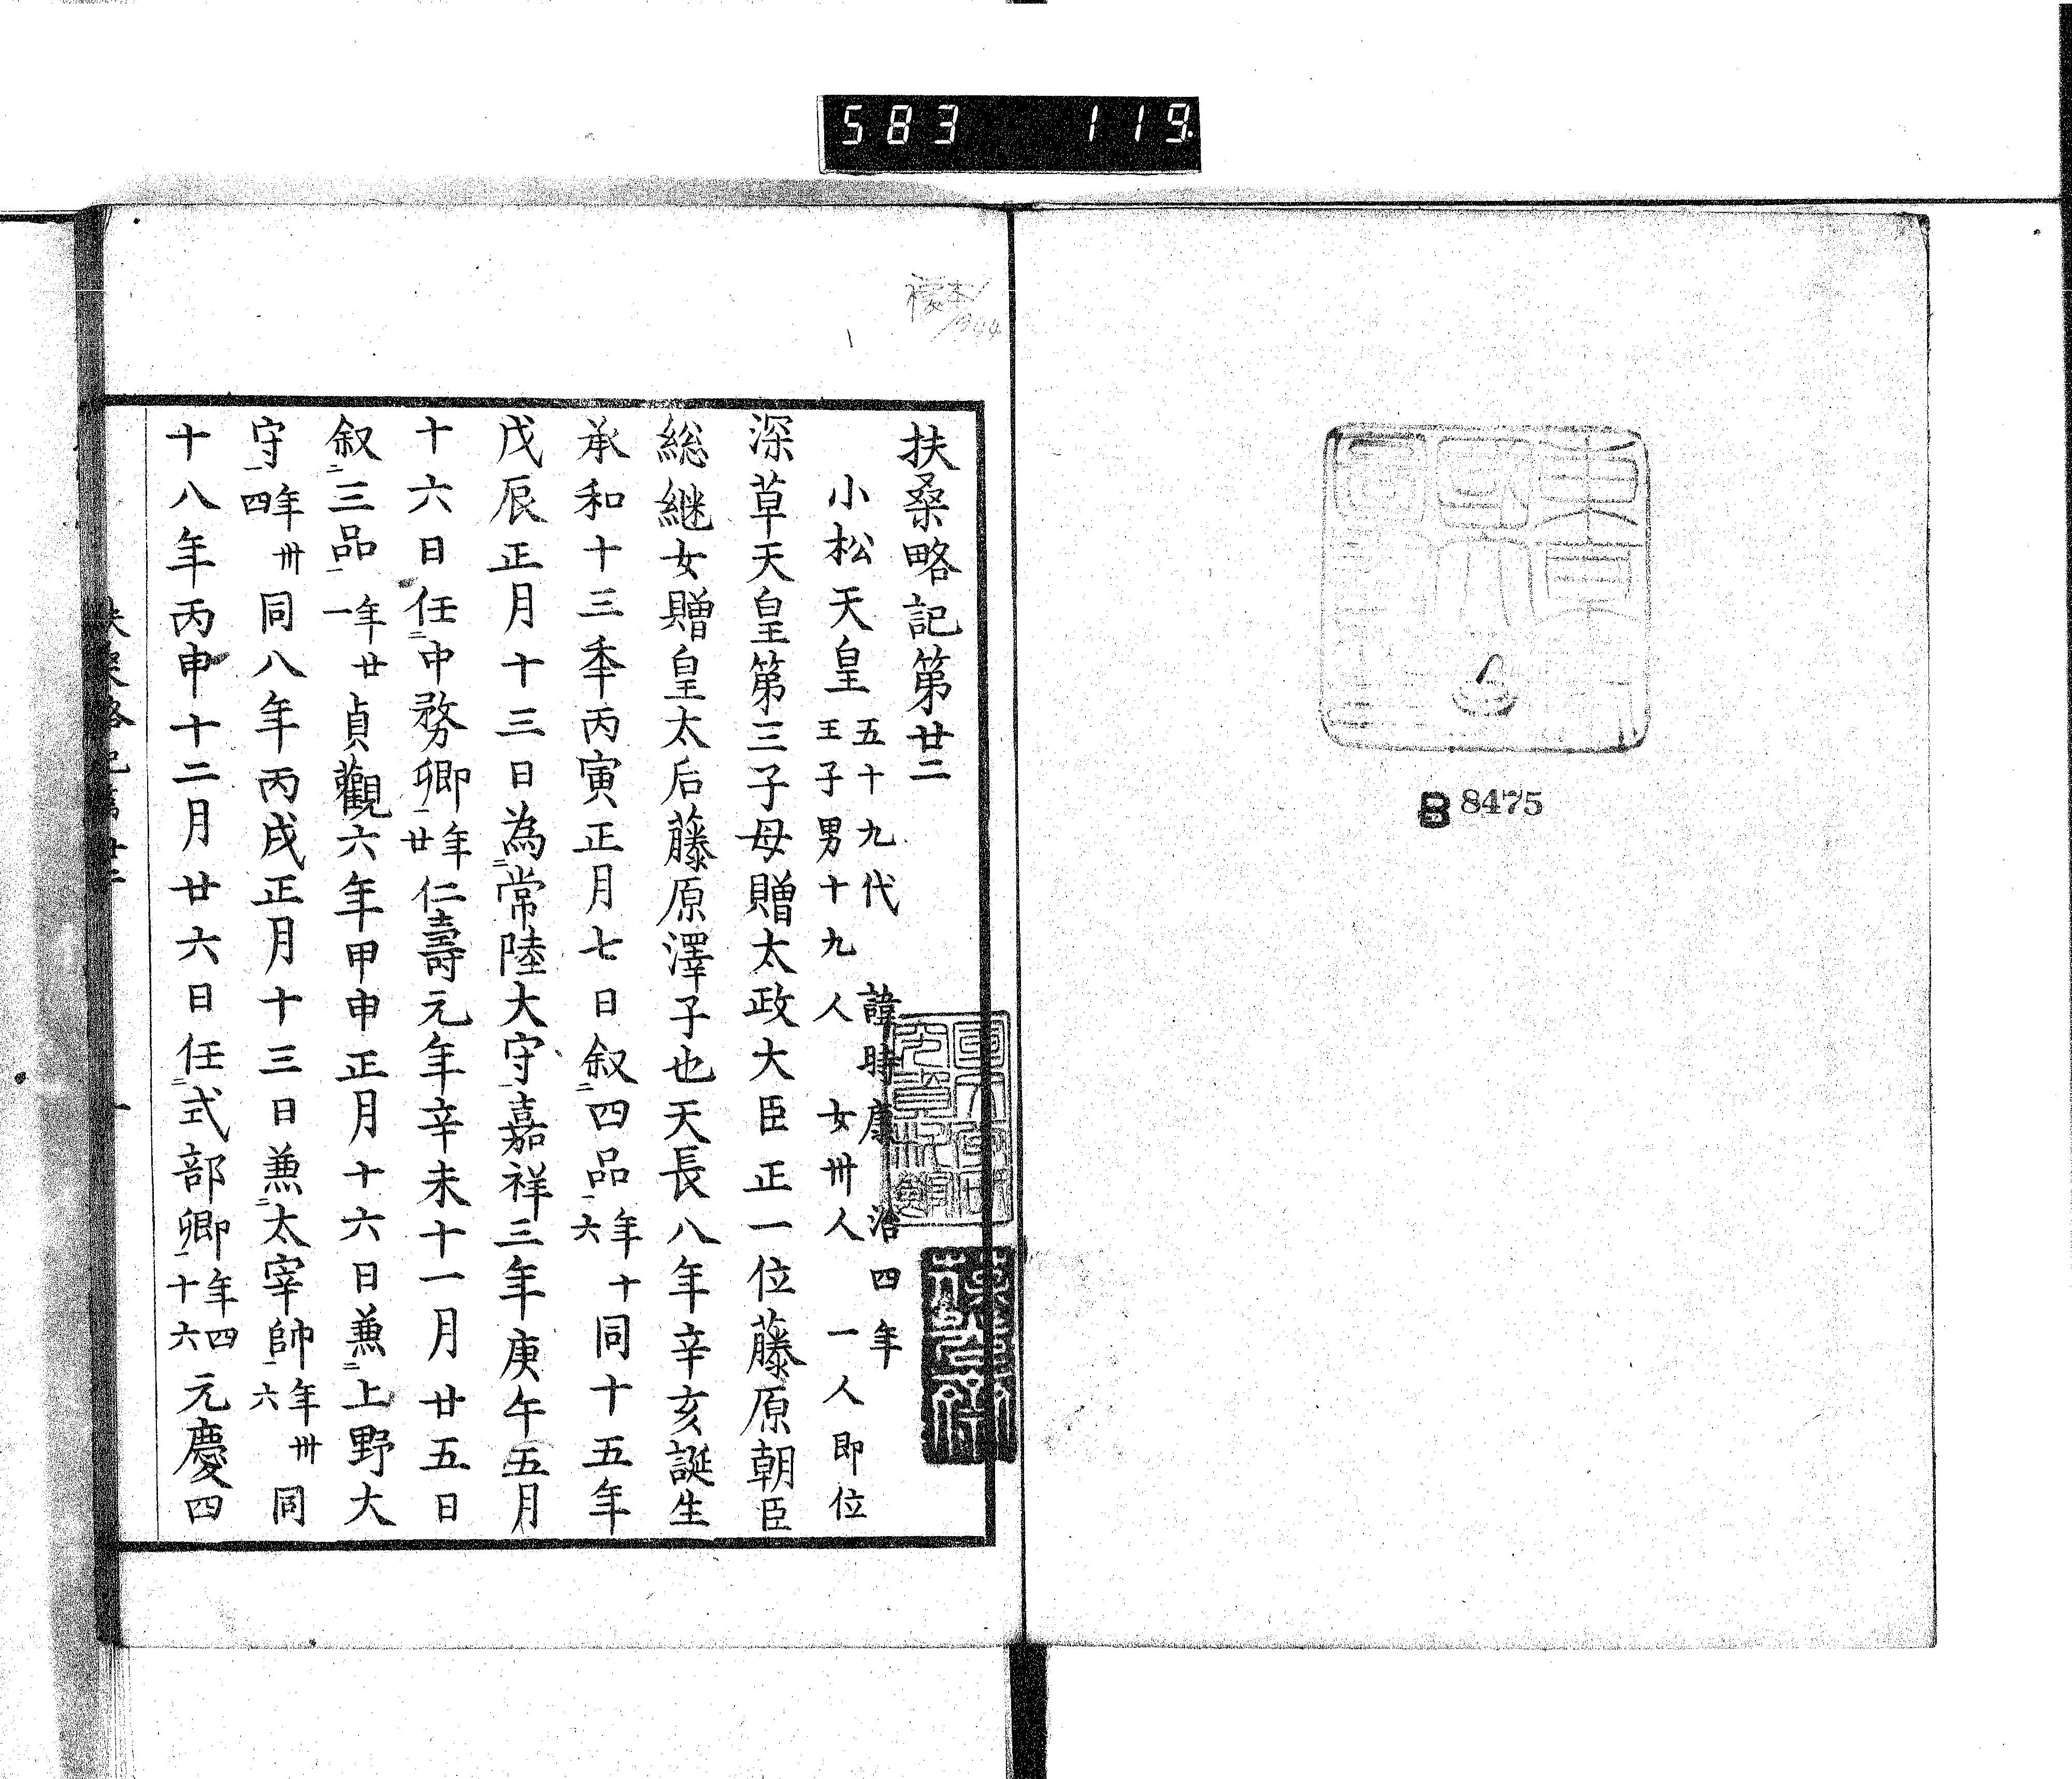 583 119
B 8475
扶桑略記第廿二
小松天皇 五十九代 諱時康 治四年
王子男十九人 女丗人 一人即位
深草天皇第三子母贈太政大臣正一位藤原朝臣
総継女贈皇太后藤原澤子也天長八年辛亥誕生
承和十三年丙寅正月七日叙二四品一年十六同十五年
戊辰正月十三日為二常陸大守一嘉祥三年庚午五月
十六日任二中務卿一年廿仁壽元年辛未十一月廿五日
叙二三品一年廿一貞觀六年甲申正月十六日兼二上野大
守一年丗四同八年丙戌正月十三日兼二太宰帥一年丗六同
十八年丙申十二月廿六日任二式部卿一年四十六元慶四
扶桑略記第廿二 一